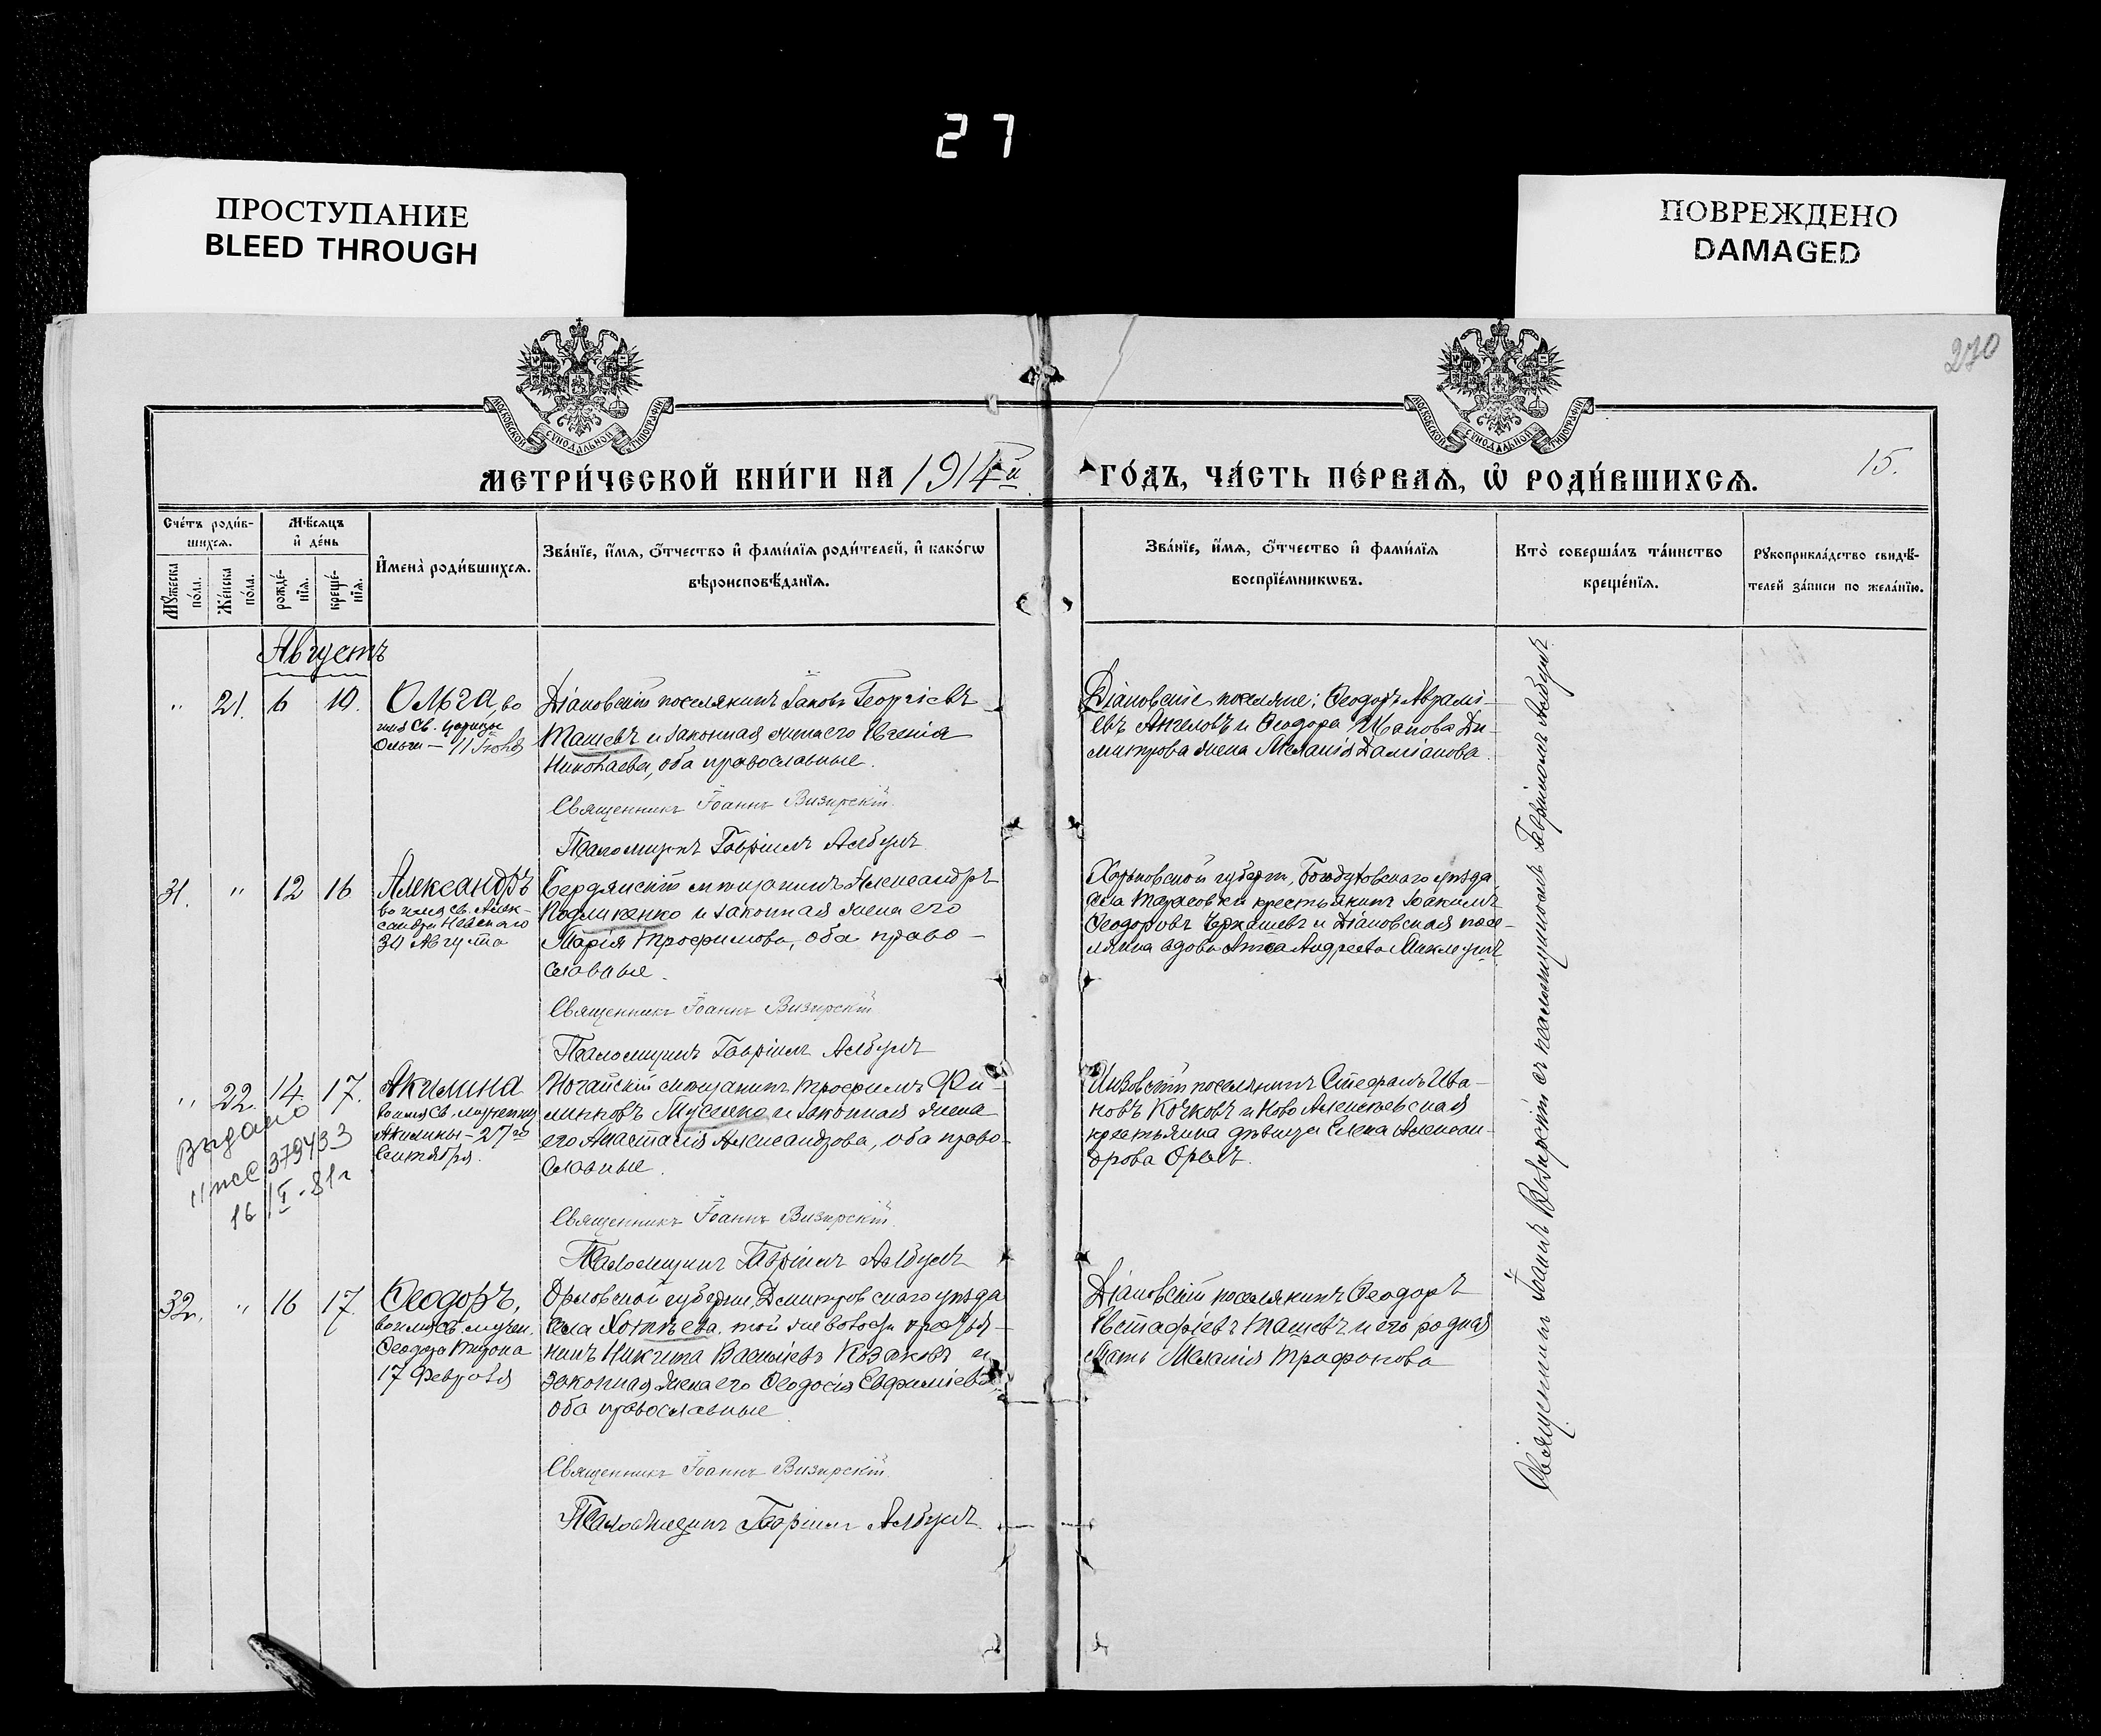 27
ПРОСТУПАНИЕ
BLEED THROUGH
ПОВРЕЖДЕНО
DAMAGED
270
МОСКОВСКОЙ СѴНОДАЛЬНОЙ ТИПОГРАФІИ
МОСКОВСКОЙ СѴНОДАЛЬНОЙ ТИПОГРАФІИ
МЕТРИ́ЧЕСКОЙ КНИ́ГИ НА 1914й ГО́ДЪ, ЧА́СТЬ ПЕ́РВАѦ, Ѽ РОДИ́ВШИХСѦ.
15.
Сче́тъ роди́в-
шихсѧ.
Му́жеска по́ла.
Же́нска по́ла.
Мѣ́сяцъ
и҆ де́нь
рожде́-
нїѧ.
креще́-
нїѧ.
И҆мена̀ роди́вшихсѧ.
Зва́нїе, и҆́мѧ, ѻ҆́тчество и҆ фами́лїѧ роди́телей, и҆ како́гѡ
вѣроисповѣ́данїѧ.
Зва́нїе, и҆́мѧ, ѻ҆́тчество и҆ фами́лїѧ
воспрїе́мникѡвъ.
Кто̀ соверша́лъ та́инство
креще́нїѧ.
Рꙋкоприкла́дство свидѣ́-
телей за́писи по жела́нїю.
Августъ
" 21. 6 10.
Ольга, во
имя Св. царицы
Ольги – 11 Іюля
Діановскій поселянинъ Іаковъ Георгіевъ
Ташевъ и законная жена его Евгенія
Николаева, оба православные.
Священникъ Іоаннъ Визирскій
Псаломщикъ Гавріилъ Албулъ
Діановскіе поселяне: Ѳеодоръ Аврамі-
евъ Ангеловъ и Ѳеодора Иванова Ди-
митрова жена Меланія Даміанова.
31. " 12 16
Александръ
во имя св. Алек-
сандра Невскаго
30 Августа
Бердянскій мѣщанинъ Александръ
и законная жена его
Марія Трофимова, оба право-
славные.
Священникъ Іоаннъ Визирскій
Псаломщикъ Гавріилъ Албулъ
Харьковской губерніи, Богодуховскаго уѣзда
села Тарасовки крестьянинъ Іоакимъ
Ѳеодоровъ и Діановская посе-
лянка вдова Анна Андреева
" 22. 14. 17.
Акилина
во имя Св. мученицы
Акилины – 27го
Сентября.
Выдано
379433
16/II-81г
Ногайскій мѣщанинъ Трофимъ Фи-
липповъ Мусіенко и законная жена
его Анастасія Александрова, оба право-
славные.
Священникъ Іоаннъ Визирскій
Псаломщикъ Гавріилъ Албулъ
поселянинъ Стефанъ Ива-
новъ Кочковъ и Ново Алексѣевская
крестьянка дѣвица Елена Алексан-
дрова Орелъ.
32. " 16 17.
Ѳеодоръ,
во имя Св. мучен.
Ѳеодора Тирона
17 Февраля
Орловской губерніи, Дмитровскаго уѣзда
села той же волости крестья-
нинъ Никита Васильевъ Козаковъ и
законная жена его Ѳеодосія Евфиміева
оба православные
Священникъ Іоаннъ Визирскій
Псаломщикъ Гавріилъ Албулъ
Діановскій поселянинъ Ѳеодоръ
Евстафіевъ Ташевъ и его родная
мать Меланія Трифонова
Священникъ Іоаннъ Визирскій съ псаломщикомъ Гавріиломъ Албулъ